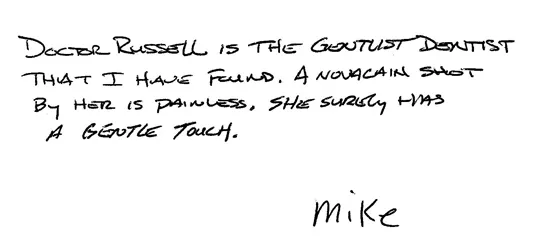 DOCTOR RUSSELL IS THE GENTLIST DENTIST
THAT I HAVE FOUND. A NOVACAIN SHOT
BY HER IS PAINLESS. SHE SURELY HAS
A GENTLE TOUCH.
MIKE